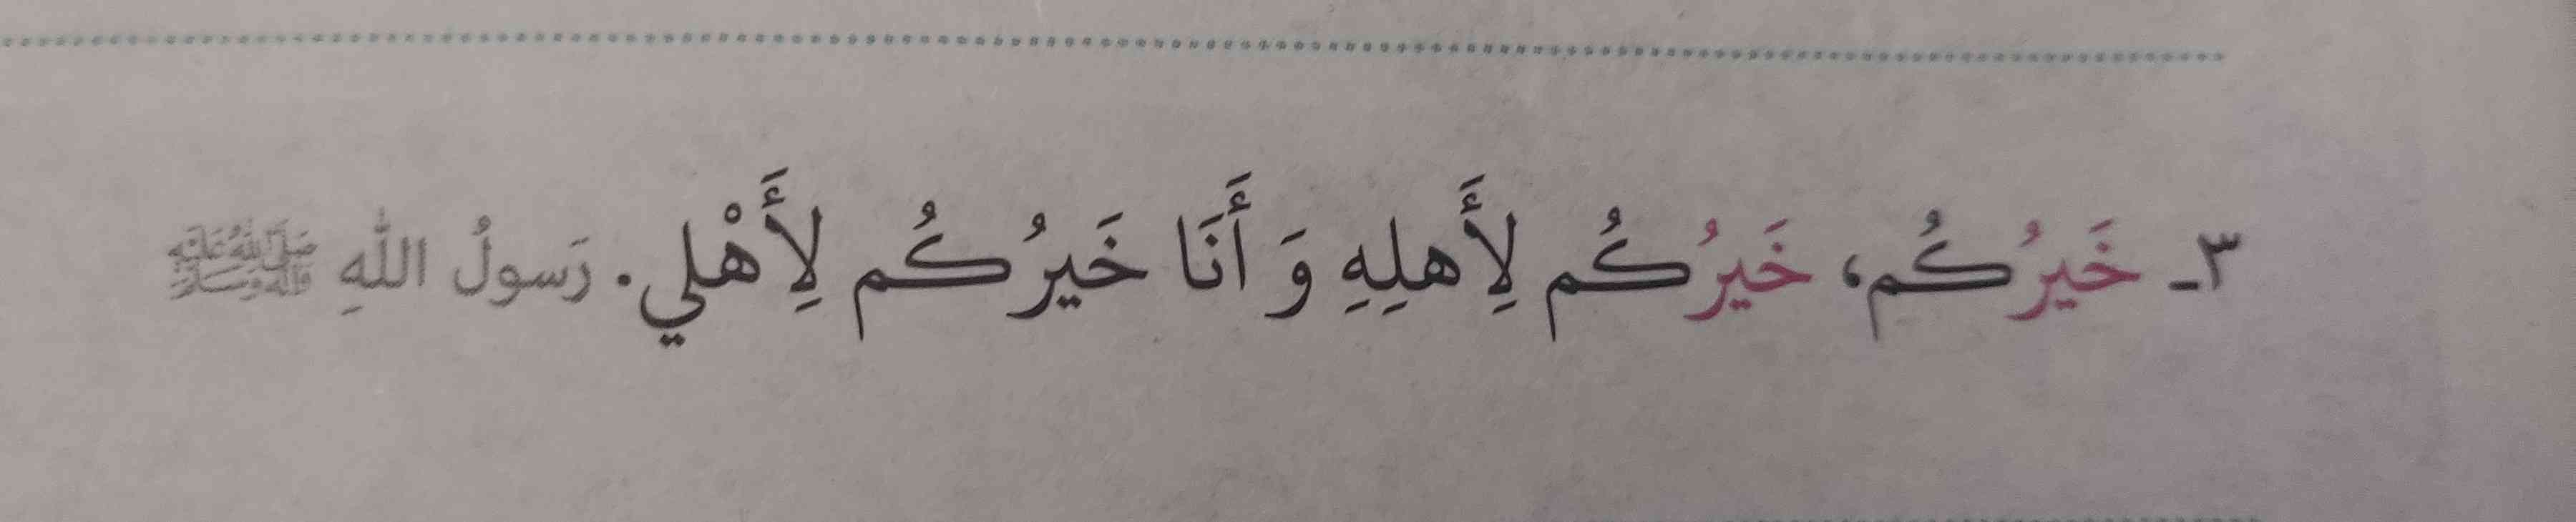 ٣ـ خَيرُكُم، خَيرُكُم لِأَهلِهِ وَ أَنَا خَيرُكُم لِأَهْلي. رَسولُ اللّٰهِ ﷺ